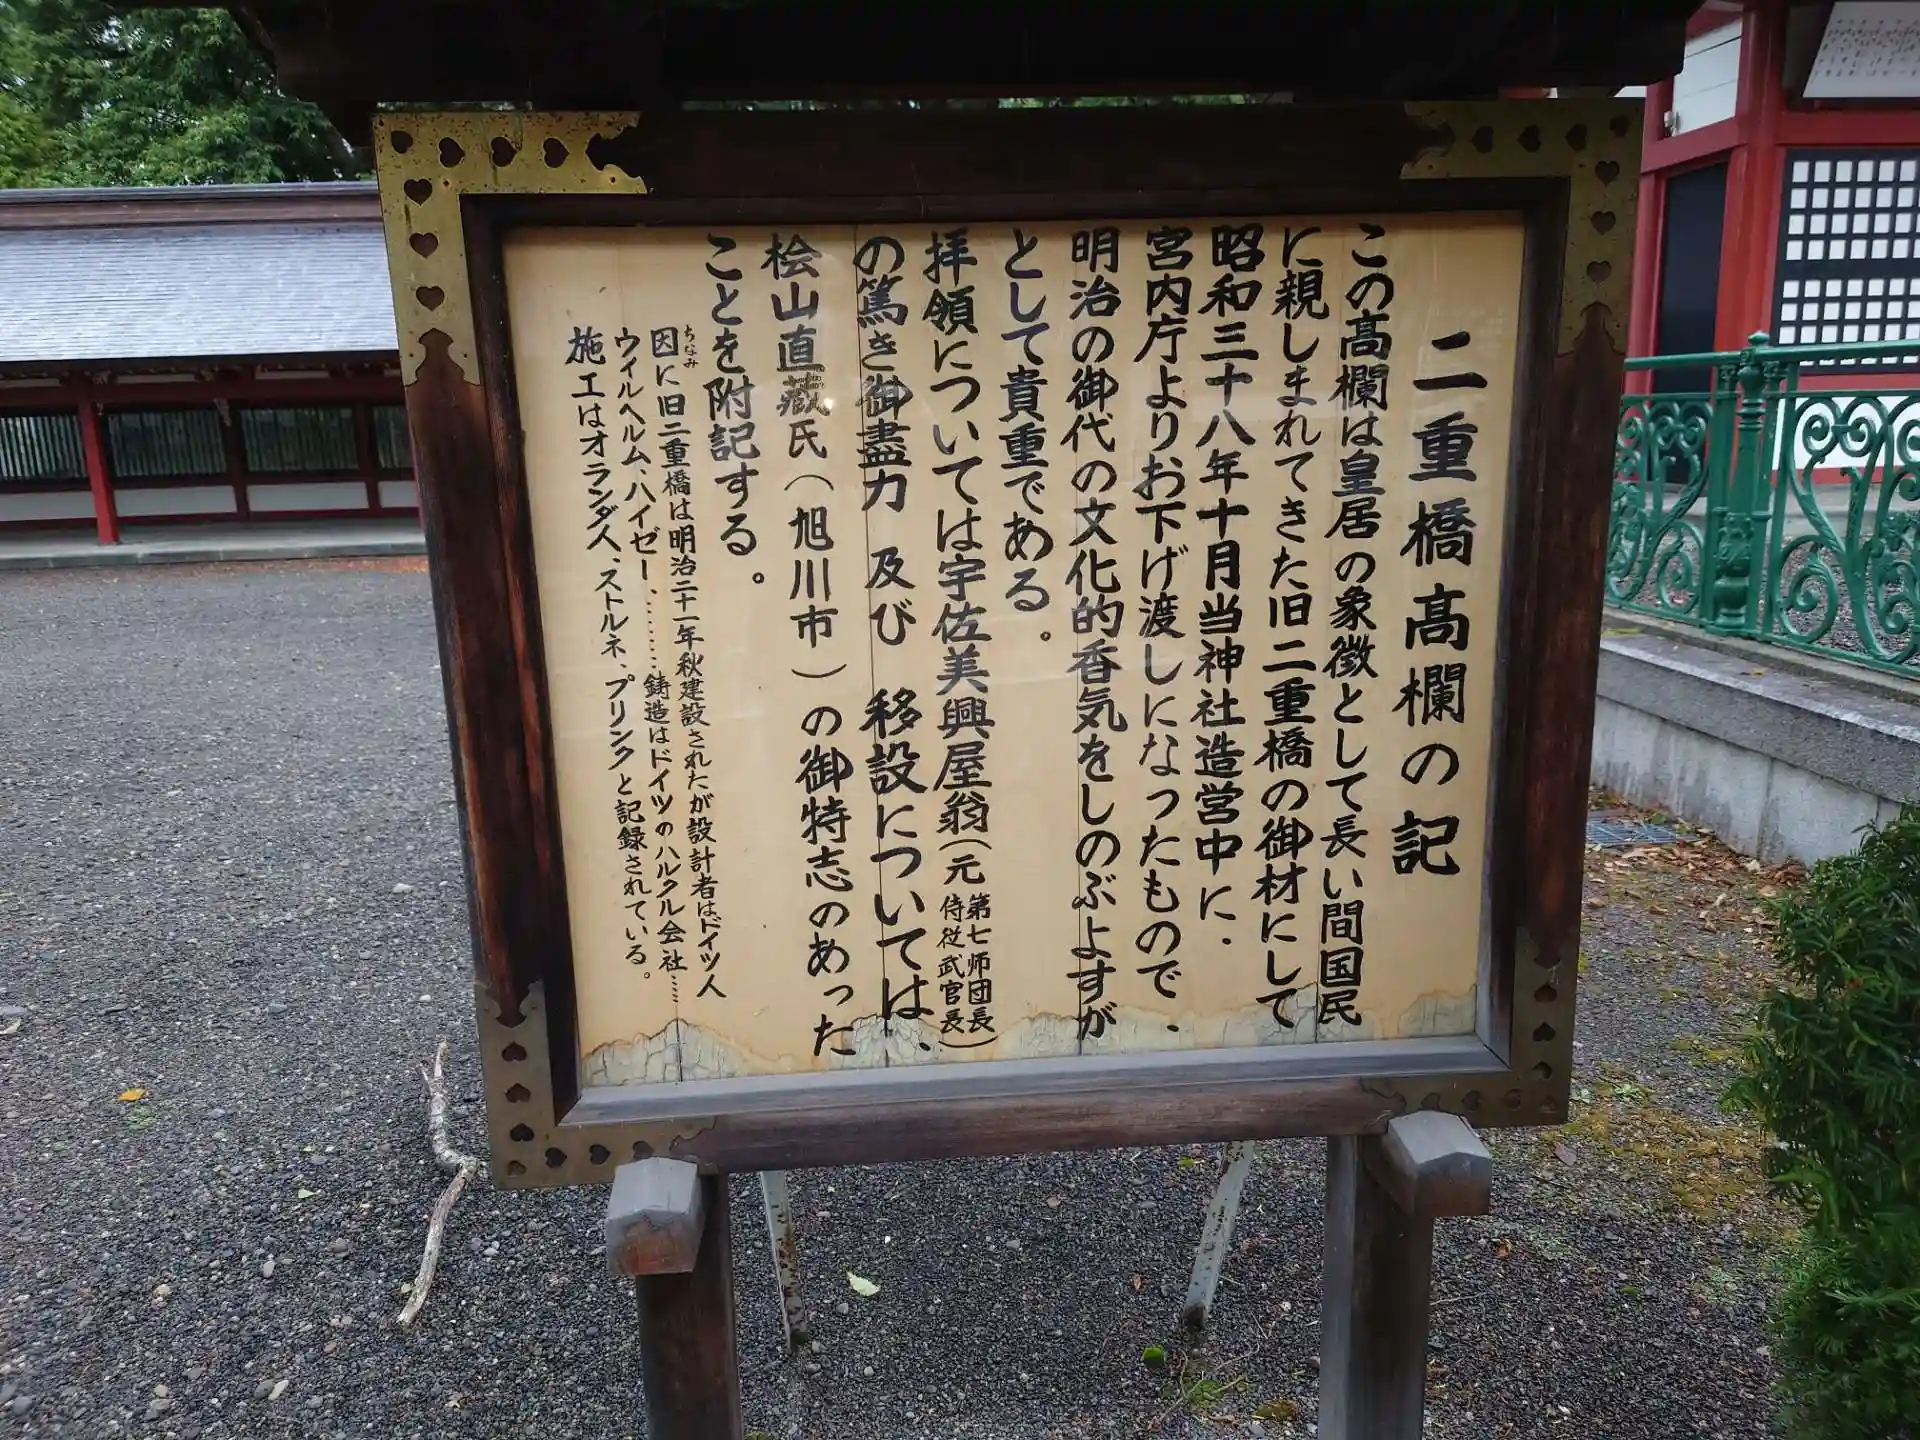 二重橋高欄の記
この高欄は皇居の象徴として長い間国民
に親しまれてきた旧二重橋の御材にして
昭和三十八年十月当神社造営中に、
宮内庁よりお下げ渡しになったもので、
明治の御代の文化的香気をしのぶよすが
として貴重である。
拝領については宇佐美興屋翁(元第七師団長侍従武官長)
の篤き御盡力 及び 移設については、
桧山直蔵氏(旭川市)の御特志のあった
ことを附記する。
ちなみ
因に旧二重橋は明治二十一年秋建設されたが設計者はドイツ人
ウィルヘルム、ハイゼー、………鋳造はドイツのハルクル会社……
施工はオランダ人、ストルネ、ブリンクと記録されている。